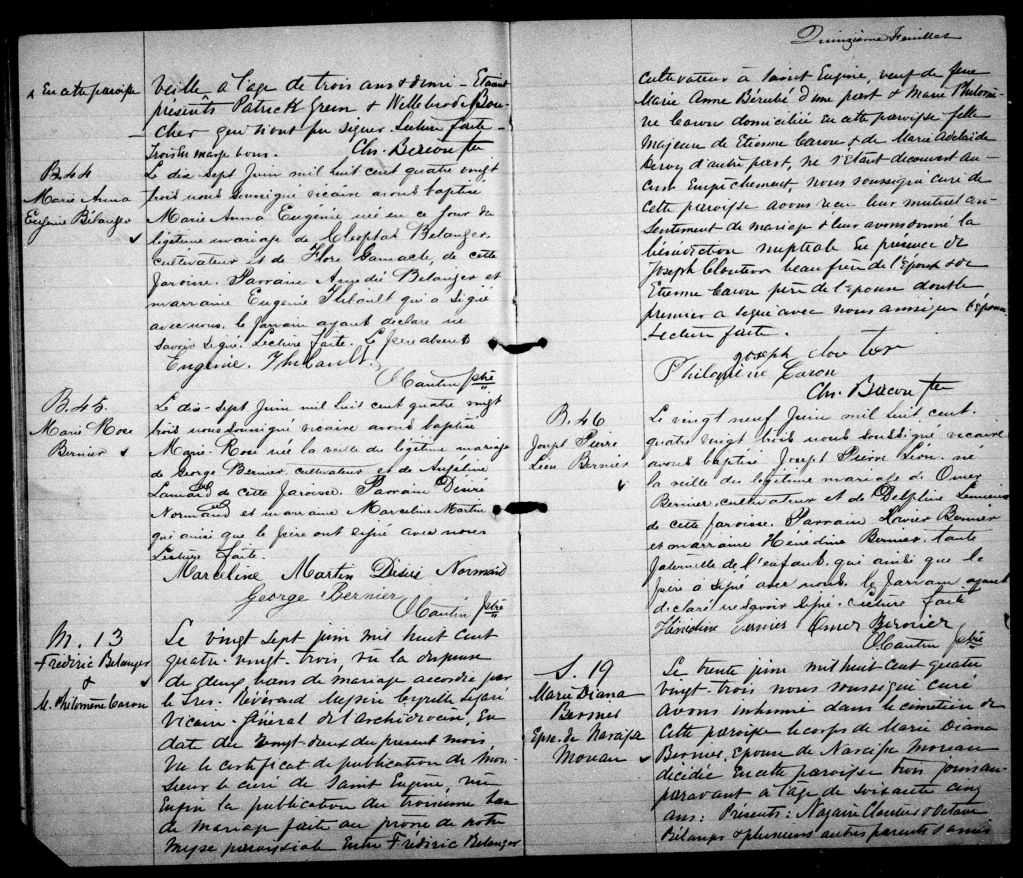 Quinzième Feuillet
x En cette paroisse
veille a l'age de trois ans & demi - Etaient
présents Patrick Green & Willebrode Bou-
cher qui n'ont pu signer. Lecture faite -
trois en marge bons. Chs. Bacon ptre
B. 44
Marie Anna
Eugénie Bélanger
Le dix-sept Juin mil huit cent quatre vingt
trois nous soussigné vicaire avons baptisé
Marie Anna Eugénie née en ce jour du
légitime mariage de Cléophas Bélanger,
cultivateur et de Flore Gamache, de cette
paroisse. Parrain Amédé Bélanger et
marraine Eugénie Thibault qui a signé
avec nous. le parrain ayant déclaré ne
savoir signé. Lecture faite. Le père absent
Eugénie. Thibault.
ptre
B. 45.
Marie Rose
Bernier
Le dix-sept Juin mil huit cent quatre vingt
trois nous soussigné vicaire avons baptisé
Marie-Rose née la veille du légitime mariage
de George Bernier, cultivateur et de Anjéline
de cette paroisse. Parrain Désiré
Normand et marraine Marceline Martin
qui ainsi que le père ont signé avec nous
Lecture faite.
Marceline Martin Désiré Normand
George Bernier
ptre
M. 13
Frédéric Belanger
&
M. Philomène Caron
Le vingt sept juin mil huit cent
quatre-vingt-trois, vu la dispense
de deux bans de mariage accordée par
le Très Révérend Messire Cyrille Légaré
Vicaire-Général de l'archidiocèse, en
date du vingt-deux du présent mois,
Vu le certificat de publication de Mon-
sieur le curé de Saint Eugène, vu
Enfin la publication du troisième ban
de mariage faite au prône de notre
messe paroissiale Entre Frédéric Belanger
cultivateur à Saint Eugène, veuf de feue
Marie Anne Bérubé d'une part & Marie Philomè-
ne Caron domiciliée en cette paroisse fille
majeure de Etienne Caron & de Marie Adelaide
d'autre part, ne s'étant découvert au-
cun Empêchement, nous soussigné curé de
cette paroisse avons reçu leur mutuel con-
sentement de mariage & leur avons donné la
bénédiction nuptiale En présence de
Joseph Cloutier beau frère de l'Epoux & de
Etienne Caron père de l'épouse dont le
premier a signé avec nous ainsi que l'épouse
Lecture faite.
joseph cloutier
Philomène Caron
Chs. Bacon ptre
B. 46
Joseph Pierre
Léon Bernier
Le vingt neuf Juin mil huit cent.
quatre vingt trois nous soussigné vicaire
avons baptisé Joseph Pierre Léon. né
la veille du légitime mariage de Omer
Bernier, cultivateur et de Delphine Lemieux
de cette paroisse. Parrain Xavier Bernier
et marraine Hénédine Bernier, tante
paternelle de l'enfant, qui ainsi que le
père a signé avec nous. le parrain ayant
déclaré ne savoir signé. Lecture faite
Hénédine Bernier Omer Bernier
ptre
S. 19
Marie Diana
Bernier
Epse. de Narcisse
Moreau
Le trente juin mil huit cent quatre
vingt-trois nous soussigné curé
avons inhumé dans le cimetière de
cette paroisse le corps de Marie Diana
Bernier, épouse de Narcisse Moreau
décédée En cette paroisse trois jours au-
paravant à l'âge de soixante cinq
ans: Présents: Nazaire Cloutier & Octave
Bélanger & plusieurs autres parents & amis